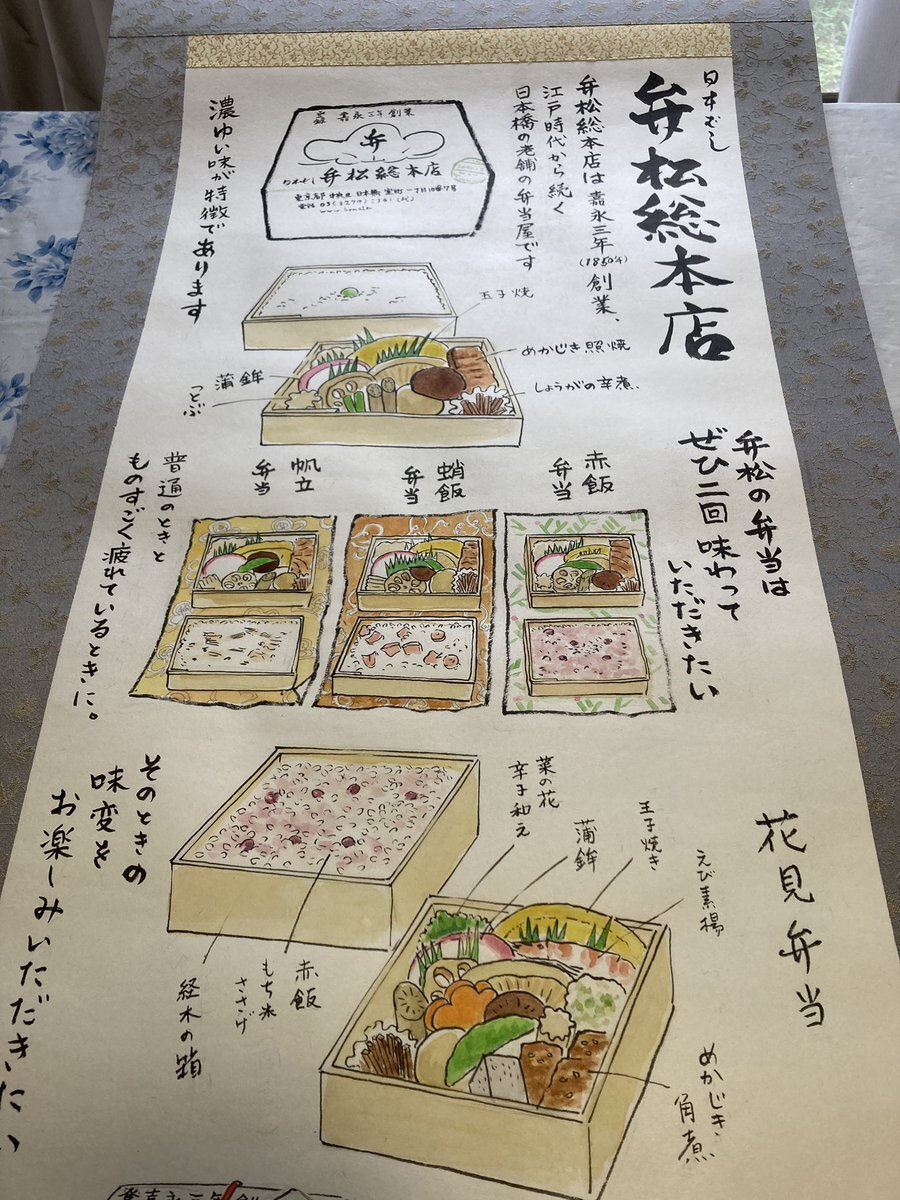 日本ばし
弁松総本店
弁松総本店は嘉永三年(1850年)創業、
江戸時代から続く
日本橋の老舗の弁当屋です
嘉永三年創業
弁
弁松総本店
東京都
日本橋室町一丁目10番7号
濃ゆい味が特徴であります
玉子焼
めかじき照焼
しょうがの辛煮
蒲鉾
つとぶ
弁松の弁当は
ぜひ二回味わって
いただきたい
赤飯
弁当
蛸飯
弁当
帆立
弁当
普通のときと
ものすごく疲れているときに。
そのときの
味変を
お楽しみいただきたい
花見弁当
菜の花
辛子和え
蒲鉾
玉子焼き
えび素揚
赤飯
もち米
ささげ
経木の箱
めかじき
角煮
嘉永三年創